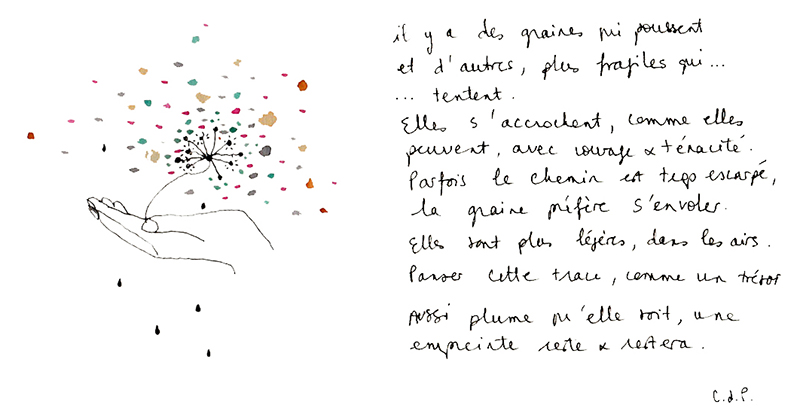 il y a des graines qui poussent
et d'autres, plus fragiles qui...
... tentent.
Elles s'accrochent, comme elles
peuvent, avec courage & ténacité.
Parfois le chemin est trop escarpé,
la graine préfère s'envoler.
Elles sont plus légères, dans les airs.
Panser cette trace, comme un trésor
AUSSi plume qu'elle soit, une
empreinte reste & restera.
C.d.P.